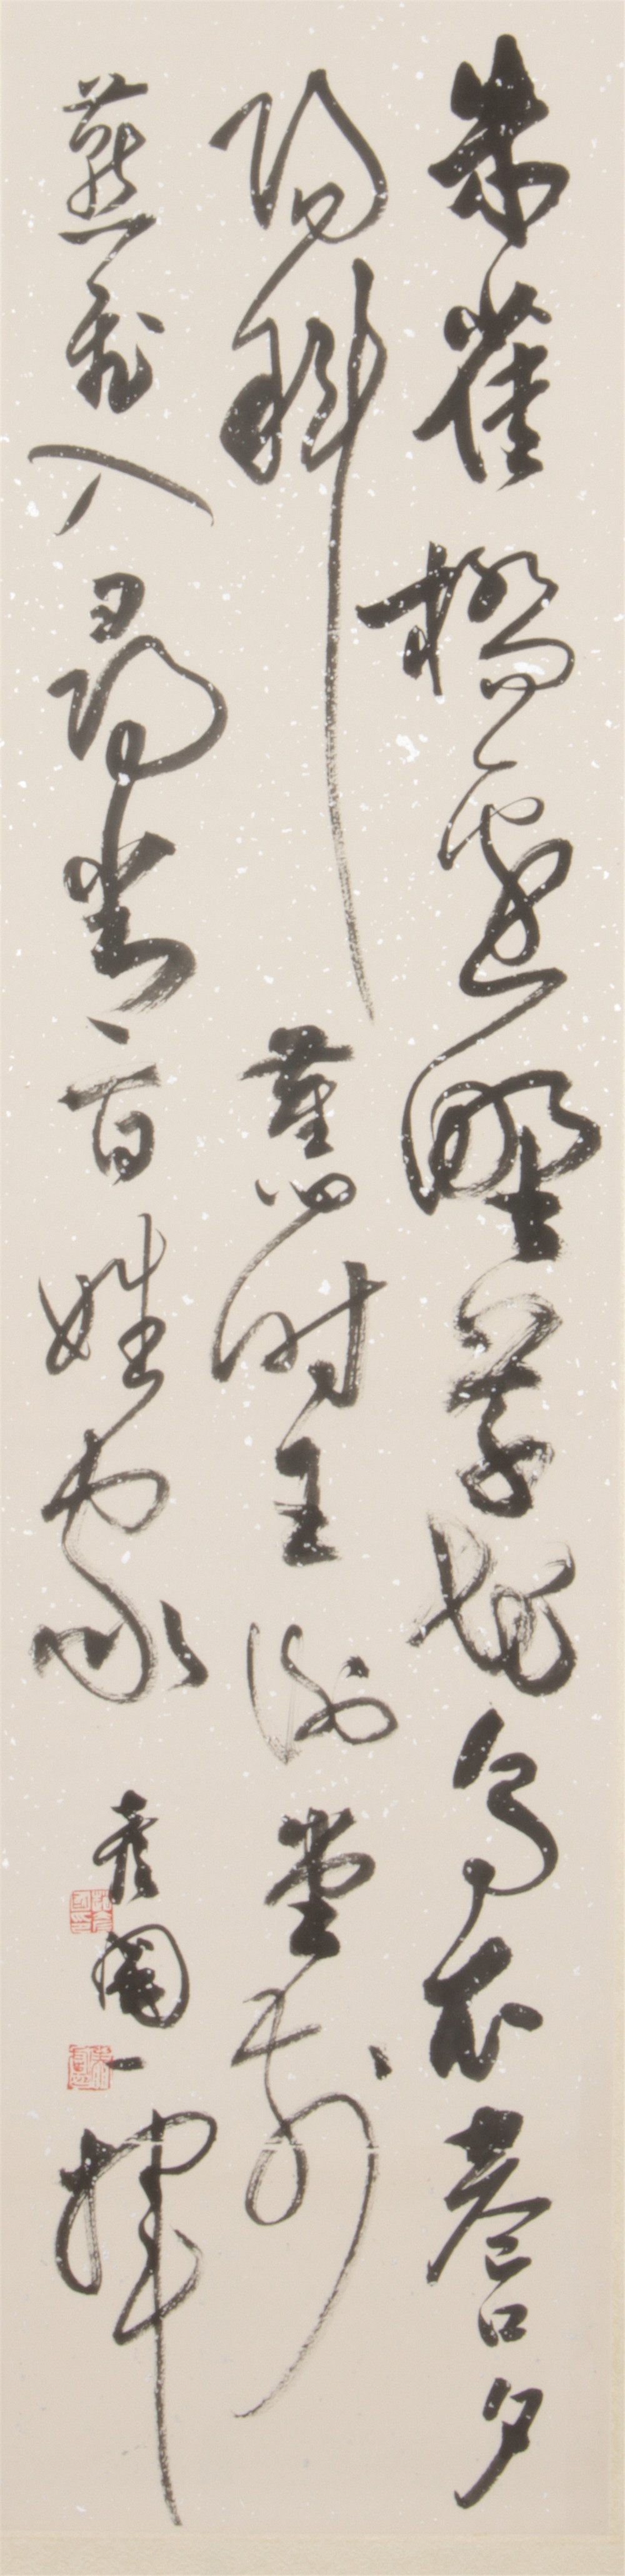 朱雀橋邊野草花烏衣巷口夕
陽斜舊時王謝堂前
燕飛入尋常百姓家 一揮